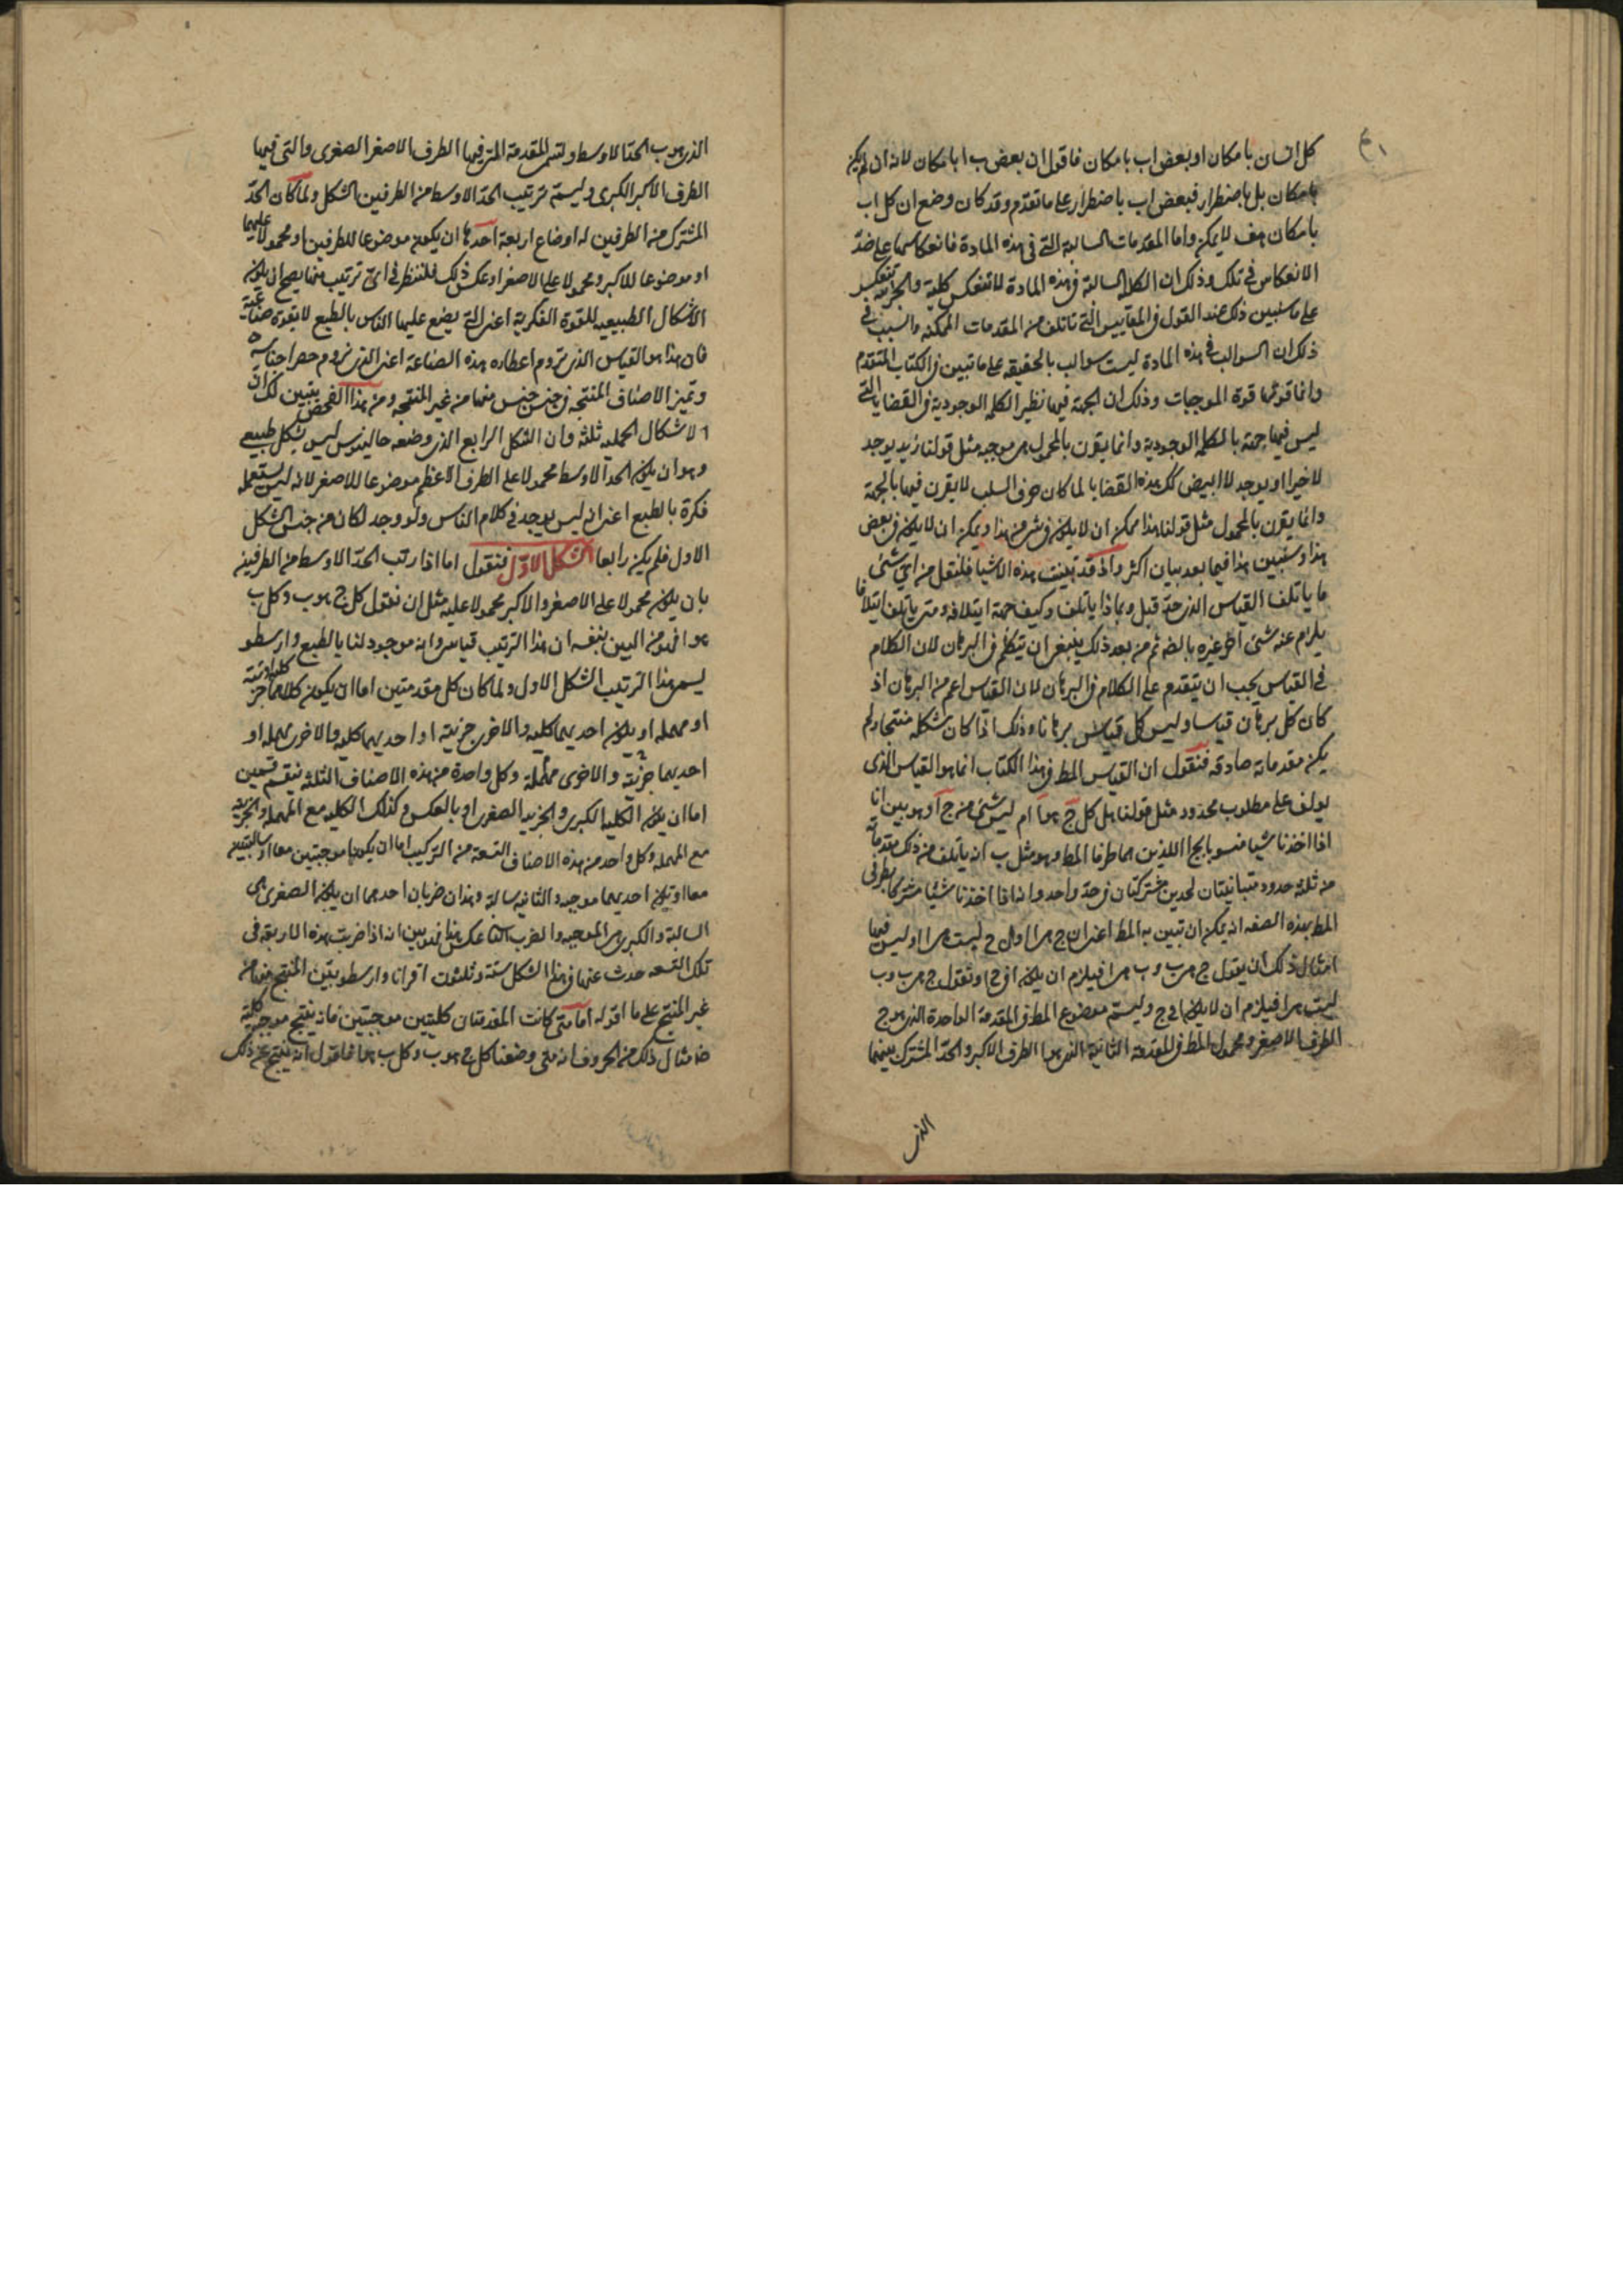 كل انسان بامكان او بعض اب بامكان فاقول ان بعض ب ا بامكان لانه ان لم يكن
بامكان بل باضطرار فبعض اب باضطرار على ما تقدم وقد كان وضع ان كل اب
بامكان هف لا يمكن واما المقدمات السالبة التى فى هذه المادة فانعكاسها على ضد
الانعكاس فى تلك وذلك ان الكلية السالبة فى هذه المادة لا تنعكس كلية والجزئية تنعكس
على ما سنبين ذلك عند القول فى المقاييس التى تاتلف من المقدمات الممكنه والسبب فى
ذلك ان السوالب فى هذه المادة ليست سوالب بالحقيقه على ما تبين فى الكتاب المتقدم
وانما قوتها قوة الموجبات وذلك ان الجهة فيها نظير الكلمه الوجودية فى القضايا التى
ليس فيها جهة بالكلمه الوجودية وانما يقرن بالمحمول هى موجبه مثل قولنا زيد يوجد
لا خيرا او يوجد لا ابيض كك هذه القضايا لما كان حرف السلب لا يقرن فيها بالجهة
وانما يقرن بالمحمول مثل قولنا هذا ممكن ان لا يكون فى شىء من هذا ويمكن ان لا يكون فى بعض
هذا وسنبين هذا فيما بعد بيان اكثر واذ قد تبينت هذه الاشيا فلنقل من اى شئ
ما ياتلف القياس الذى حد قبل وبماذا ياتلف وكيف جهة ايتلافه ومتى ياتلف ايتلافا
يلزم عنه شئ اخر غيره بالضه ثم من بعد ذلك ينبغى ان يتكلم فى البرهان لان الكلام
فى القياس يجب ان يتقدم على الكلام فى البرهان لان القياس اعم من البرهان اذ
كان كل برهان قياسا وليس كل قياس برهانا وذلك اذا كان شكله منتجا ولم
يكن مقدماته صادقه فنقول ان القياس المط فى هذا الكتاب انما هو القياس الذى
يولف على مطلوب محدود مثل قولنا هل كل ج هو ا ام ليس شئ من ج ا وهو بين انا
اذا اخذنا شيا منسوبا بج ا اللذين هما طرفا المط وهو مثل ب انه ياتلف من ذلك مقدماته
من ثلثة حدود متباينتان لحدين مشتركتان فى حد واحد وانه اذا اخذنا شيئا مشتركا بطرفى
المط بهذه الصفه انه يمكن ان تبين به المط اعنى ان ج هى ا او ان ج ليست هى ا وليس فيما
امثال ذلك ان يقول ج هى ب وب هى ا فيلزم ان يكون ا فى ج او نقول ج هى ب وب
ليست هى ا فيلزم ان لا يكون ا فى ج وليسم موضوع المط فى المقدمة الواحدة الذى هو ج
الطرف الاصغر ومحمول المط فى المقدمة الثانية الذى هو ا الطرف الاكبر والحد المشترك بينهما
الذى
الذى هو ب الحد الاوسط ولتسم المقدمة التى فيها الطرف الاصغر الصغرى والتى فيها
الطرف الاكبر الكبرى وليسم ترتيب الحد الاوسط من الطرفين الشكل ولما كان الحد
المشترك من الطرفين له اوضاع اربعة احدها ان يكون موضوعا للطرفين او محمولا عليهما
او موضوعا للاكبر ومحمولا على الاصغر او عكس ذلك فلننظر فى اى ترتيب منها يصح ان يكون
الاشكال الطبيعيه للقوة الفكرية اعنى التى يضع عليها الناس بالطبع لا بقوة صناعية
فان هذا هو القياس الذى تروم اعطاره هذه الصناعة اعنى الذى تروم حصر اجناسه
وتميز الاصناف المنتجه فى جنس جنس منها من غير المنتجه ومن هذا الفحص يتبين لك ان
الاشكال الحمليه ثلثة وان الشكل الرابع الذى وضعه جالينوس ليس بشكل طبيعى
وهو ان يكون الحد الاوسط محمولا على الطرف الاعظم موضوعا للاصغر لانه ليس تستعمله
فكرة بالطبع اعنى انه ليس يوجد فى كلام الناس ولو وجد لكان من جنس الشكل
الاول فلم يكن رابعا الشكل الاول فنقول اما اذا رتب الحد الاوسط من الطرفين
بان يكون محمولا على الاصغر والاكبر محمولا عليه مثل ان نقول كل ج هو ب وكل ب
هو ا فهو من البين بنفسه ان هذا الترتيب قياس وانه موجود لنا بالطبع وارسطو
يسمى هذا الترتيب الشكل الاول ولما كان كل مقدمتين اما ان يكون كلاهما كلية او جزئية
او مهمله او يكون احديهما كليه والاخرى جزئية او احديهما كليه والاخرى مهمله او
احديهما جزئية والاخرى مهملة وكل واحدة من هذه الاصناف الثلثه ينقسم قسمين
اما ان يكون الكليه الكبرى والجزئيه الصغرى او بالعكس وكذلك الكليه مع المهمله والجزئية
مع المهمله وكل واحد من هذه الاصناف التسعة من التركيب اما ان يكونا موجبتين معا او سالبتين
معا او يكون احديهما موجبه والثانيه سالبة وهذان ضربان احدهما ان يكون الصغرى هى
السالبة والكبرى هى الموجبه والضرب الثانى عكس هذا فهو بين انه اذا ضربت هذه الاربعة فى
تلك التسعه حدث عنها فى هذا الشكل ستة وثلثون اقترانا وارسطو يبين المنتج منها من
غير المنتج على ما اقوله اما متى كانت المقدمتان كليتين موجبتين فانه ينتج موجبه كلية
مثال ذلك من الحروف انه متى وضعنا كل ج هو ب وكل ب هو ا فاقول انه ينتج عن ذلك